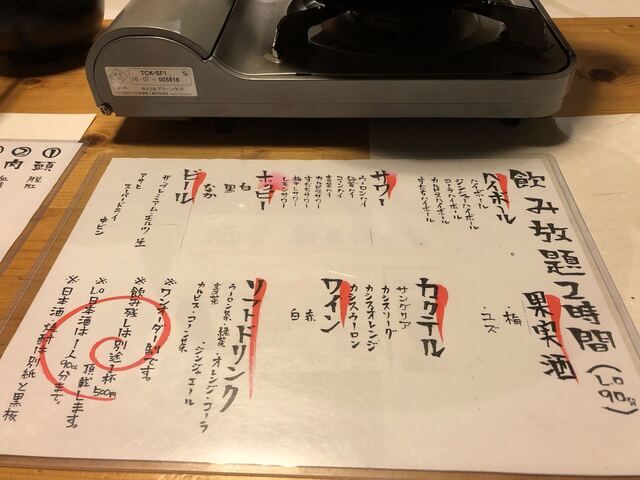 TCK-SF1
16・07 - 006818
株式会社グリーンウッド
飲み放題2時間
(L.O 90分)
ハイボール
ハイボール
ジンジャーハイボール
コーラハイボール
すだちハイボール
サワー
ウーロンハイ
緑茶ハイ
コーンハイ
玄米ハイ
カルピスサワー
すだちサワー
梅干しサワー
レモンサワー
ホッピー
白
黒
なか
ビール
ザ・プレミアムモルツ 生
アサヒ
スーパードライ
中ビン
果実酒
・梅
・ユズ
カクテル
サングリア
カシスソーダ
カシスオレンジ
カシスウーロン
ワイン
赤
白
ソフトドリンク
ウーロン茶・緑茶・オレンジ・コーラ
・ジンジャエール
カルピス・コーン茶
※ワンオーダー制です。
※飲み残しは別途1杯500円
頂戴します。
※L.O日本酒は1人90cc分まで。
※日本酒・焼酎は別紙と黒板
①
②
頭
肉